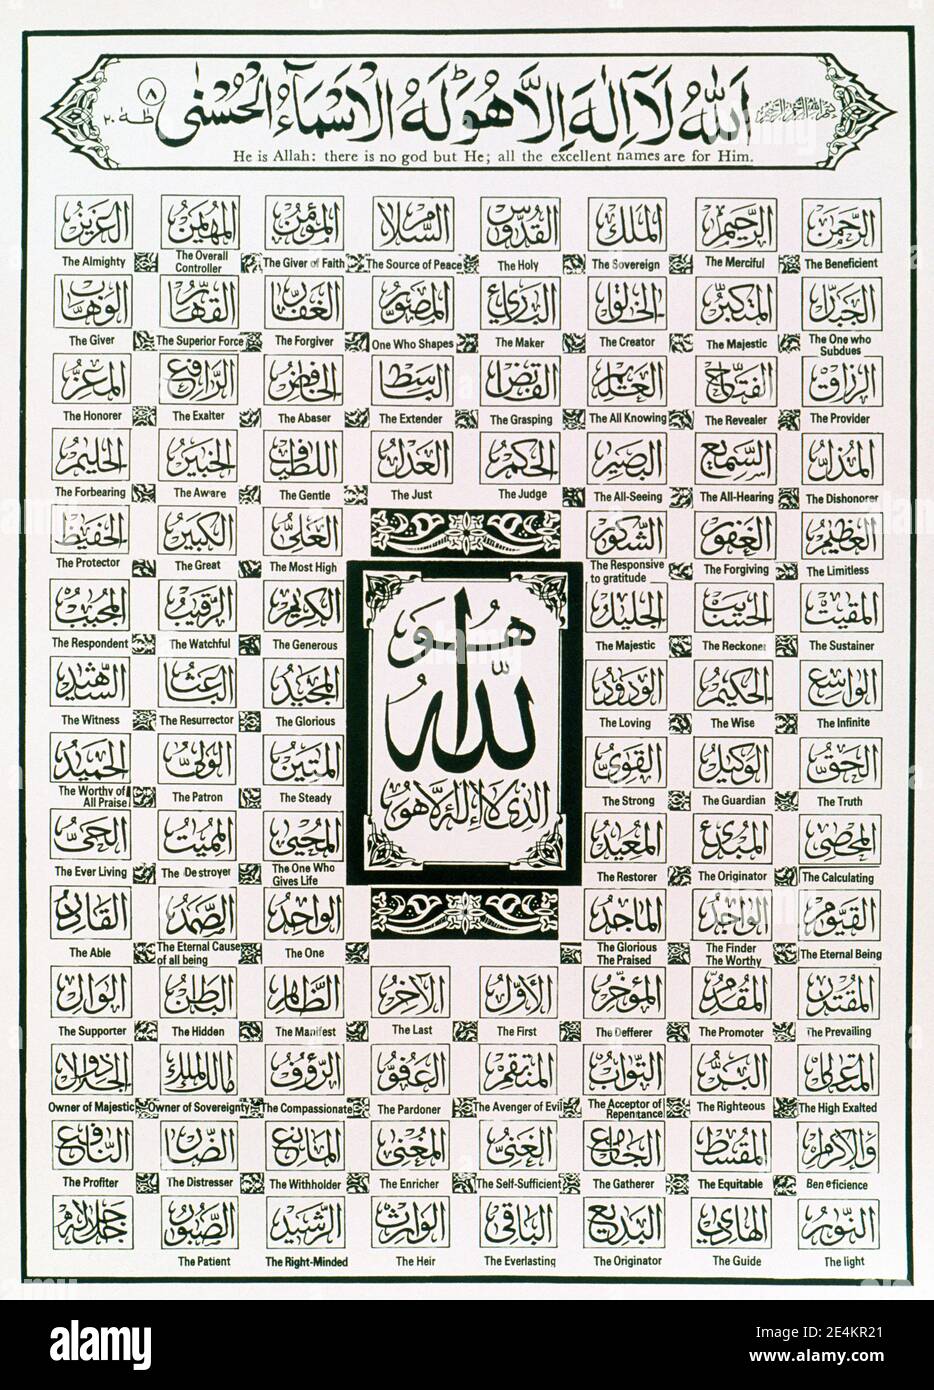 بسم الله الرحمن الرحيم
الله لا إله إلا هو له الأسماء الحسنى ٨ طه ٢٠
He is Allah: there is no god but He; all the excellent names are for Him.
الرحمن الرحيم الملك القدوس السلام المؤمن المهيمن العزيز
The Almighty The Overall Controller The Giver of Faith The Source of Peace The Holy The Sovereign The Merciful The Beneficent
الجبار المتكبر الخالق البارئ المصور الغفار القهار الوهاب
The Giver The Superior Force The Forgiver One Who Shapes The Maker The Creator The Majestic The One who Subdues
الرزاق الفتاح العليم القابض الباسط الخافض الرافع المعز
The Honorer The Exalter The Abaser The Extender The Grasping The All Knowing The Revealer The Provider
المذل السميع البصير الحكم العدل اللطيف الخبير الحليم
The Forbearing The Aware The Gentle The Just The Judge The All-Seeing The All-Hearing The Dishonorer
العظيم الغفور الشكور العلي الكبير الحفيظ
The Protector The Great The Most High The Responsive to gratitude The Forgiving The Limitless
المقيت الحسيب الجليل الكريم الرقيب المجيب
The Respondent The Watchful The Generous The Majestic The Reckoner The Sustainer
الواسع الحكيم الودود المجيد الباعث الشهيد
The Witness The Resurrector The Glorious The Loving The Wise The Infinite
الحق الوكيل القوي المتين الولي الحميد
The Worthy of All Praise The Patron The Steady The Strong The Guardian The Truth
المحصي المبدئ المعيد المحيي المميت الحي
The Ever Living The Destroyer The One Who Gives Life The Restorer The Originator The Calculating
القيوم الواجد الماجد الواحد الصمد القادر
The Able The Eternal Cause of all being The One The Glorious The Praised The Finder The Worthy The Eternal Being
هو الله
الذي لا إله إلا هو
المقتدر المقدم المؤخر الأول الآخر الظاهر الباطن الوالي
The Supporter The Hidden The Manifest The Last The First The Defferer The Promoter The Prevailing
المتعال البر التواب المنتقم العفو الرؤوف مالك الملك ذو الجلال
Owner of Majestic Owner of Sovereignty The Compassionate The Pardoner The Avenger of Evil The Acceptor of Repentance The Righteous The High Exalted
والإكرام المقسط الجامع الغني المغني المانع الضار النافع
The Profiter The Distresser The Withholder The Enricher The Self-Sufficient The Gatherer The Equitable Beneficience
النور الهادي البديع الباقي الوارث الرشيد الصبور جل جلاله
The Patient The Right-Minded The Heir The Everlasting The Originator The Guide The light
alamy
Image ID: 2E4KR21
www.alamy.com